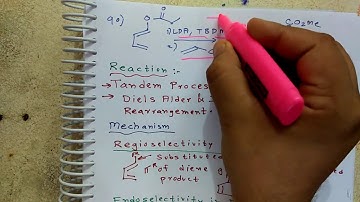 90) O O CO2Me
1) LDA, TBDM
2)
Reaction :-
→ Tandem Proces
→ Diels Alder &
Rearrangement.
Mechanism
Regioselectivity
Substitute
of diene g
product
Endoselectivity